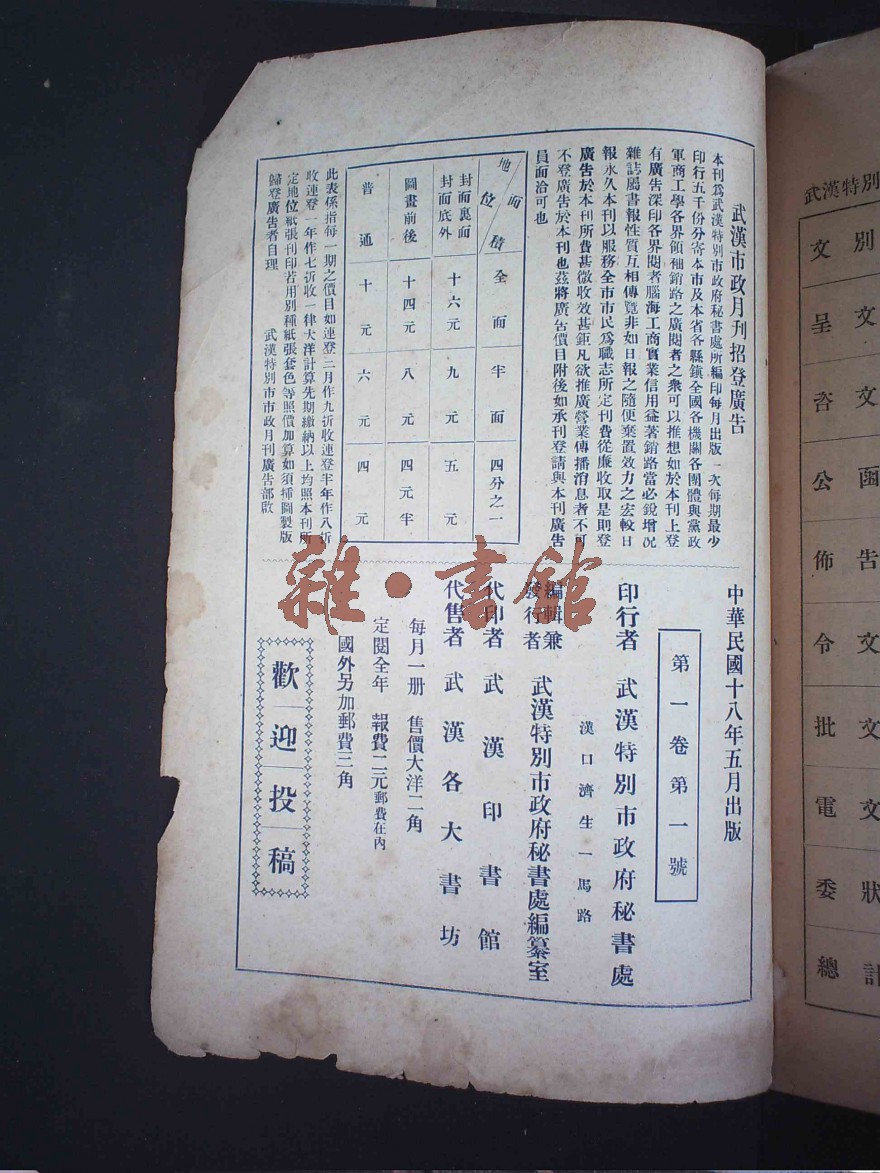 武漢市政月刊招登廣告
本刊爲武漢特別市政府秘書處所編印每月出版一次每期最少
印行五千份分寄本市及本省各縣鎮全國各機關各團體與黨政
軍商工學各界領袖銷路之廣閱者之衆可以推想如於本刊上登
有廣告深印各界閱者腦海工商實業信用益著銷路當必銳增况
雜誌屬書報性質互相傳覽非如日報之隨便棄置效力之宏較日
報永久本刊以服務全市市民爲職志所定刊費從廉收取是則登
廣告於本刊所費甚微收效甚鉅凡欲推廣營業傳播消息者不可
不登廣告於本刊也茲將廣告價目附後如承刊登請與本刊廣告
員面洽可也
地位 面積 全面 半面 四分之一
封面裏面 封面底外 十六元 九元 五元
圖畫前後 十四元 八元 四元半
普通 十元 六元 四元
此表係指每一期之價目如連登二月作九折收連登半年作八折
收連登一年作七折收一律大洋計算先期繳納以上均照本刊所
定地位紙張刊印若用別種紙張套色等照價加算如須插圖製版
歸登廣告者自理
武漢特別市市政月刊廣告部啟
中華民國十八年五月出版
第一卷第一號
印行者 武漢特別市政府秘書處
漢口濟生一馬路
編輯兼發行者 武漢特別市政府秘書處編纂室
代印者 武漢印書館
代售者 武漢各大書坊
每月一册 售價大洋二角
定閱全年 報費二元郵費在內
國外另加郵費三角
歡迎投稿
雜·書館
武漢特別
文別
呈文
咨文
公函
佈告
令文
批文
電文
委狀
總計